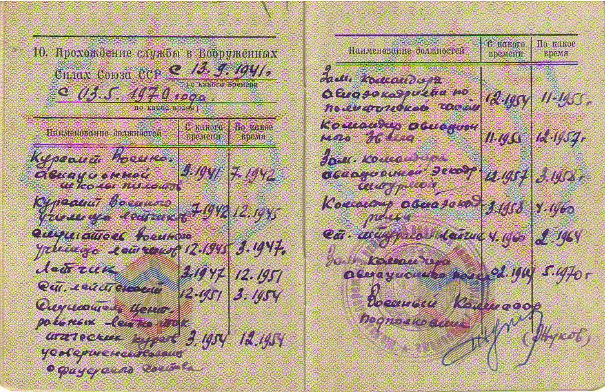 10. Прохождение службы в Вооруженных
Силах Союза ССР с 13.9.1941г.
(с какого времени
с 03.5.1970 года.
по какое время)
Наименование должностей С какого времени По какое время
Курсант Военно-
авиационной 9.1941 7.1942
школы пилотов
Курсант Военного
училища летчиков 7.1942 12.1945
Слушатель военного
училища летчиков 12.1945 3.1947г
Летчик 3.1947 12.1951
Ст. летчик 12.1951 3.1954
Слушатель Цент-
ральных летно-так
тических курсов 3.1954 12.1954
усовершенствования
офицерского состава
Наименование должностей С какого времени По какое время
Зам. командира
авиаэскадрильи по
политической части 12.1954 11-1955г.
Командир авиацион
ного звена 11.1955 12.1957г
Зам. командира
авиационной эскадр
12.1957 3.1958г
Командир авиаэскад
рильи 3.1958 4.1960
Ст. штурман 4.1960 2.1964
Зам. командира
авиационного 5.1970г
Военный Комиссар
подполковник
(Жуков)